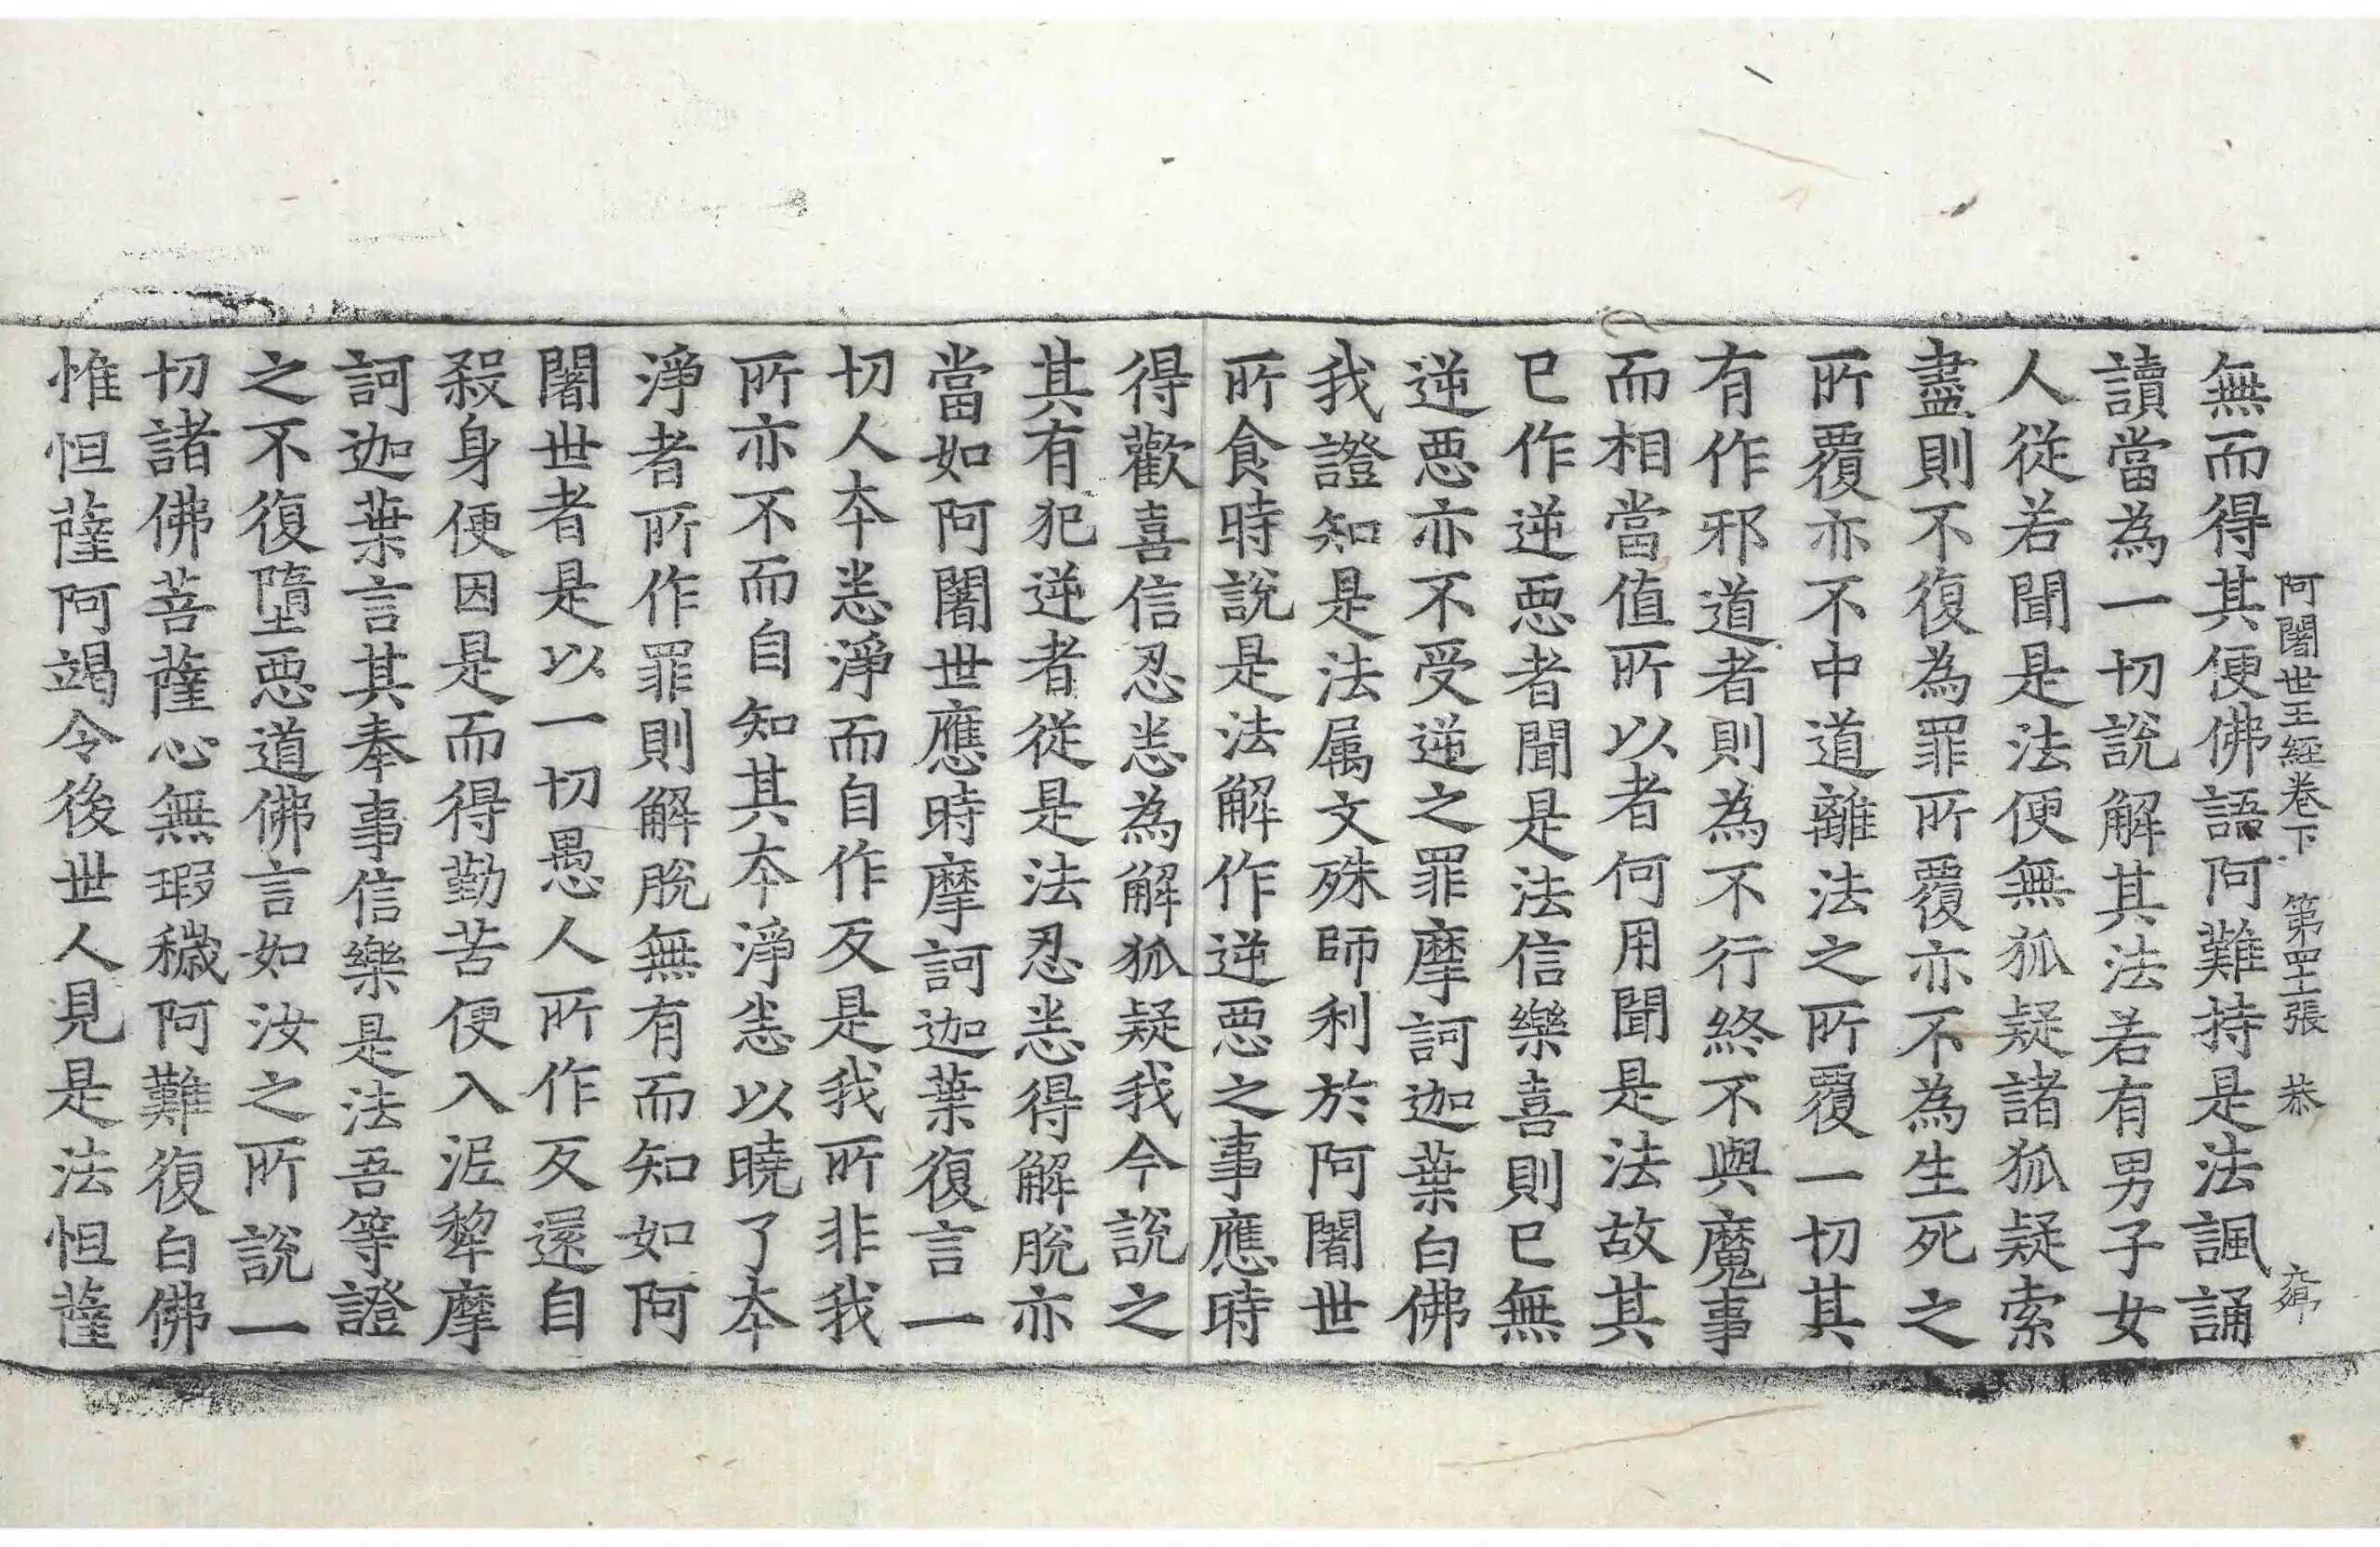 阿闍世王經卷下 第四十張 恭
無而得其便佛語阿難持是法諷誦
讀當為一切說解其法若有男子女
人從若聞是法便無狐疑諸狐疑索
盡則不復為罪所覆亦不為生死之
所覆亦不中道離法之所覆一切其
有作邪道者則為不行終不與魔事
而相當值所以者何用聞是法故其
已作逆惡者聞是法信樂喜則已無
逆惡亦不受逆之罪摩訶迦葉白佛
我證知是法属文殊師利於阿闍世
所食時說是法解作逆惡之事應時
得歡喜信忍恙為解狐疑我今說之
其有犯逆者從是法忍恙得解脫亦
當如阿闍世應時摩訶迦葉復言一
切人夲恙淨而自作反是我所非我
所亦不而自知其夲淨恙以曉了夲
淨者所作罪則解脫無有而知如阿
闍世者是以一切愚人所作反還自
殺身便因是而得勤苦便入泥犂摩
訶迦葉言其奉事信樂是法吾等證
之不復墮惡道佛言如汝之所說一
切諸佛菩薩心無瑕穢阿難復白佛
惟怛薩阿竭令後世人見是法怛薩